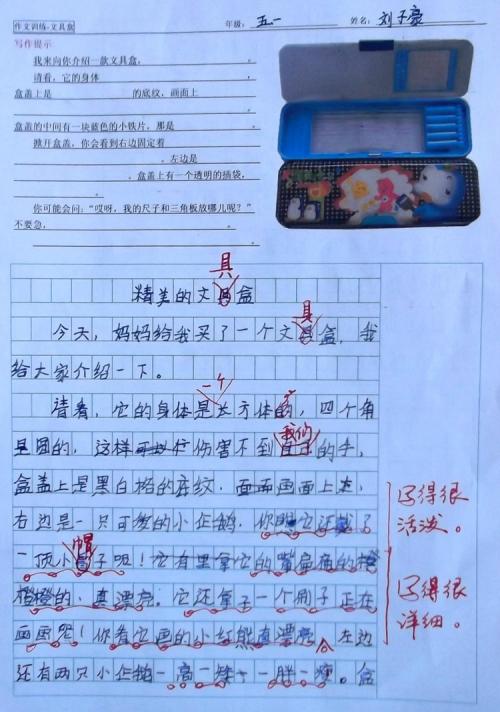 作文训练-文具盒
年级： 五一 姓名： 刘子豪
写作提示
我来向你介绍一款文具盒，。
请看，它的身体，
盒盖上是 的底纹，画面上
。
盒盖的中间有一块蓝色的小铁片，那是。
掀开盒盖，你会看到右边固定着
，左边是
。盒盖上有一个透明的插袋，
。
你可能会问：“哎呀，我的尺子和三角板放哪儿呢？”
不要急，。
具
精美的文盒
具
今天，妈妈给我买了一个文盒，我
给大家介绍一下。
一个
请看，它的身体是长方体的，四个角
我们
是圆的，这样伤害不到自己的手，
盒盖上是黑白格的底纹，画面上
右边是一只可爱的小企鹅，你它还戴了
帽
一顶小子呢！它的嘴扁扁的橙
橙橙的，真漂亮。它还拿了一个刷子正在
画画呢！你看它画的小红熊真漂亮，左边
还有两只小企鹅一高一矮，一胖一瘦。盒
写得很
活泼。
写得很
详细。